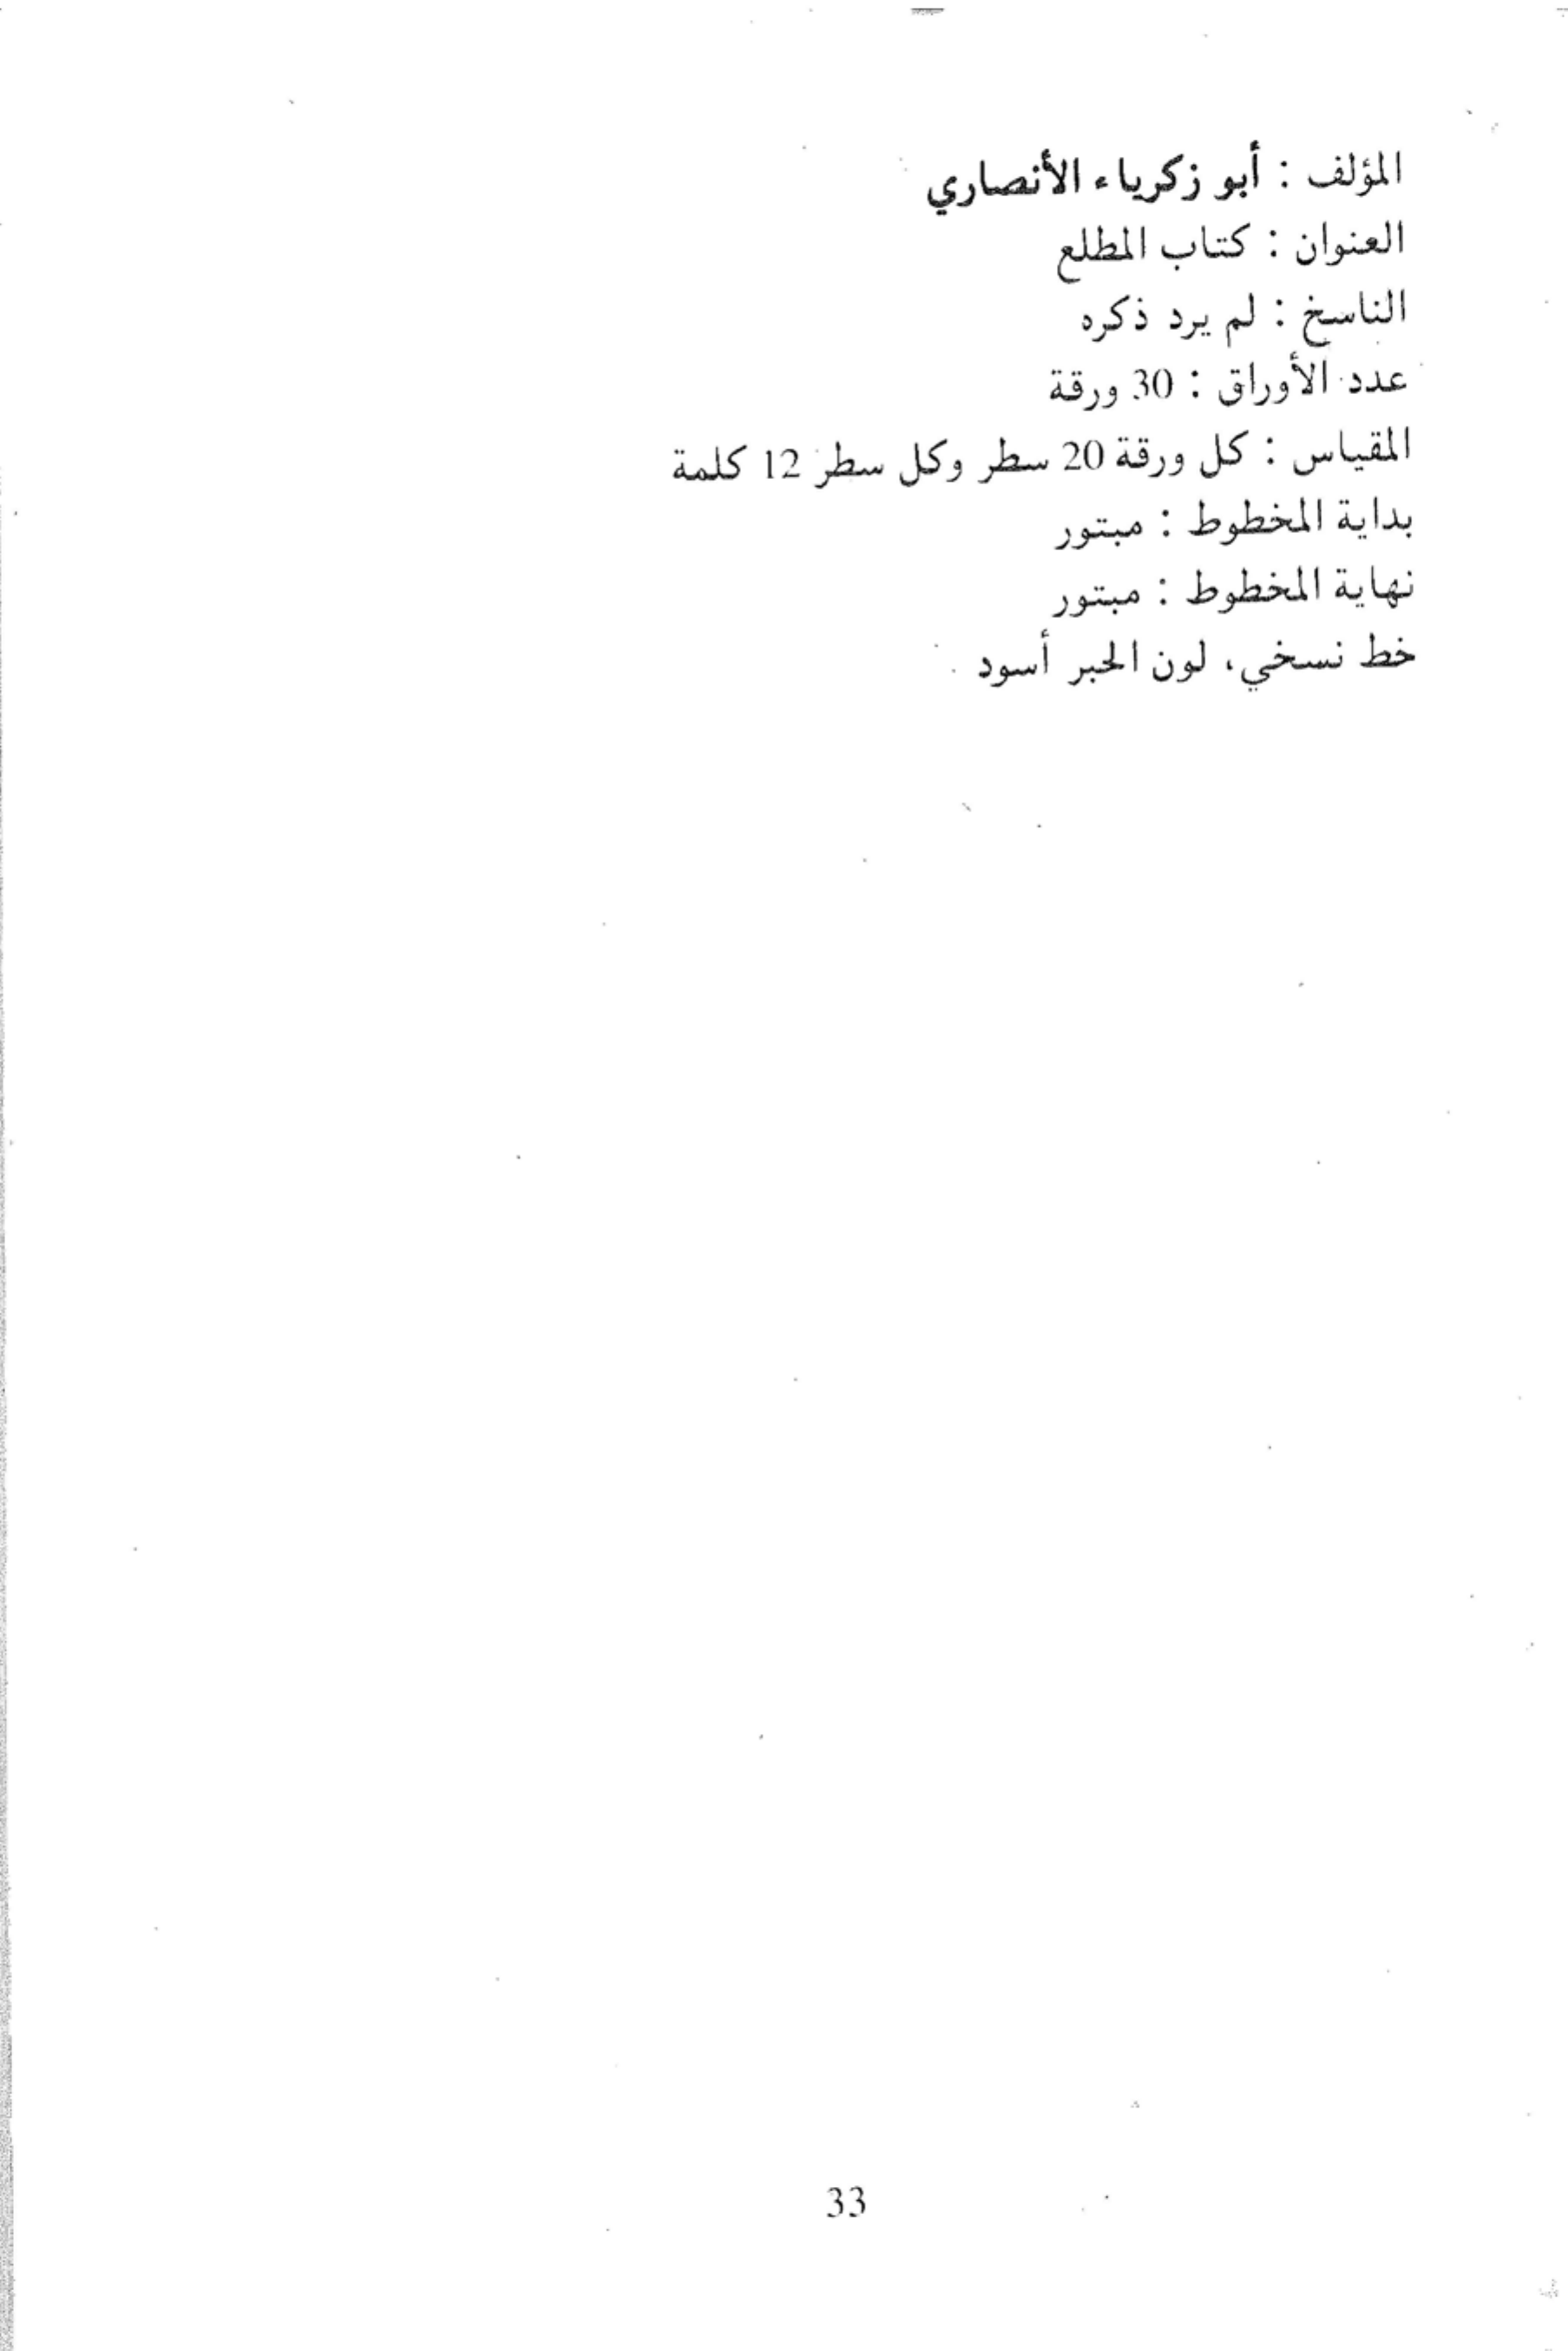 المؤلف : أبو زكرياء الأنصاري
العنوان : كتاب المطلع
الناسخ : لم يرد ذكره
عدد الأوراق : 30 ورقة
المقياس : كل ورقة 20 سطر وكل سطر 12 كلمة
بداية المخطوط : مبتور
نهاية المخطوط : مبتور
خط نسخي، لون الحبر أسود .
33